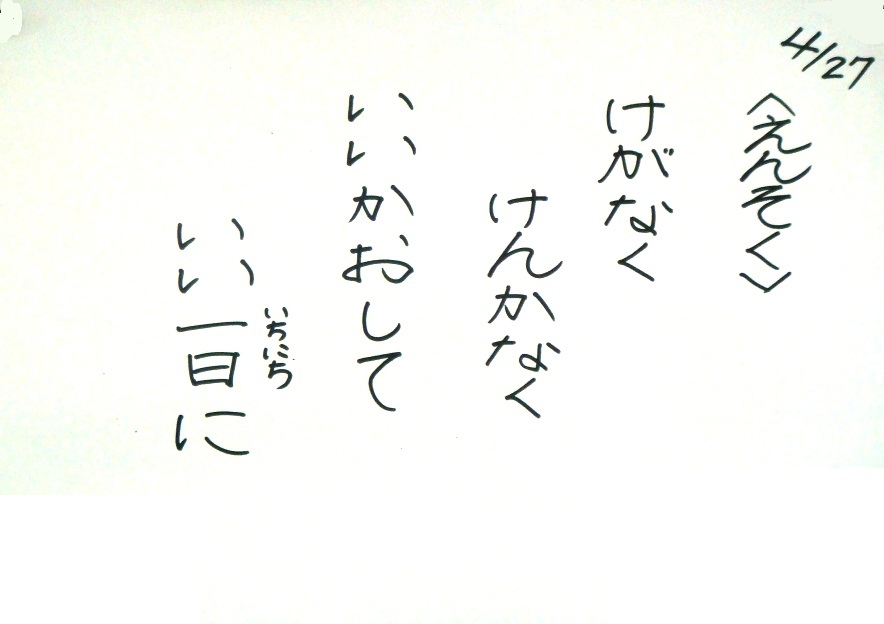 4/27
〈えんそく〉
けがなく
けんかなく
いいかおして
いい一日に
いちにち